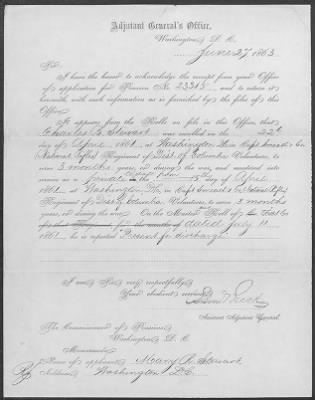 Adjutant General's Office,
Washington, D. C.
June 27, 1863
Sir:
I have the honor to acknowledge the receipt from your Office
of application for Pension No. 23315, and to return it
herewith, with such information as is furnished by the files of this
Office.
It appears from the Rolls on file in this Office, that
Charles B. Stewart was enrolled on the 22d
day of April, 1861, at Washington, in Capt
National Rifles Regiment of Dist. of Columbia Volunteers, to
serve 3 months years, or during the war, and mustered into
service as a Private on the 15th day of April,
1861, at Washington, in Capt
Regiment of Dist. Columbia Volunteers, to serve 3 months
years, or during the war. On the Muster Roll of
for the months of dated July 11
1861, he is reported "Present for discharge."
I am, Sir, very respectfully,
Your obedient servant,
Assistant Adjutant General.
The Commissioner of Pensions,
Washington, D. C.
Memoranda:
Name of applicant, Mary A. Stewart
Address, Washington D.C.